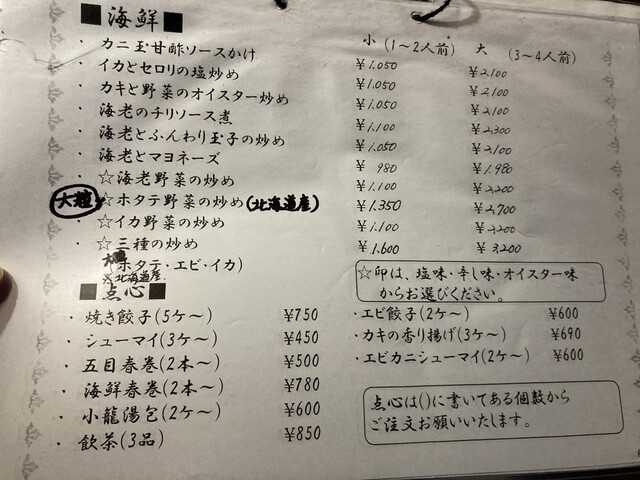 ■海鮮■ 小(1～2人前) 大(3～4人前)
・カニ玉甘酢ソースかけ ¥1.050 ¥2.100
・イカとセロリの塩炒め ¥1.050 ¥2.100
・カキと野菜のオイスター炒め ¥1.050 ¥2.100
・海老のチリソース煮 ¥1.100 ¥2.300
・海老とふんわり玉子の炒め ¥1.050 ¥2.100
・海老とマヨネーズ ¥980 ¥1.980
・☆海老野菜の炒め ¥1.100 ¥2.200
大粒 ☆ホタテ野菜の炒め(北海道産) ¥1.350 ¥2.700
・☆イカ野菜の炒め ¥1.100 ¥2.200
・☆三種の炒め ¥1.600 ¥3.200
ホタテ・エビ・イカ)
※北海道産
☆印は、塩味・辛し味・オイスター味
からお選びください。
■点心■
・焼き餃子(5ケ～) ¥750
・シューマイ(3ケ～) ¥450
・五目春巻(2本～) ¥500
・海鮮春巻(2本～) ¥780
・小龍湯包(2ケ～) ¥600
・飲茶(3品) ¥850
・エビ餃子(2ケ～) ¥600
・カキの香り揚げ(3ケ～) ¥690
・エビカニシューマイ(2ケ～) ¥600
点心は()に書いてある個数から
ご注文お願いいたします。